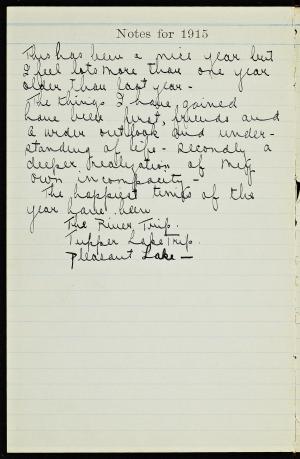 Notes for 1915
This has been a nice year but
I feel lots more than one year
older than last year -
The things I have gained
have been first, friends and
a wider outlook and under-
standing of life - secondly a
deeper realization of my
own incapacity -
The happiest times of this
year have been
The River Trip.
Tupper Lake Trip.
Pleasant Lake -